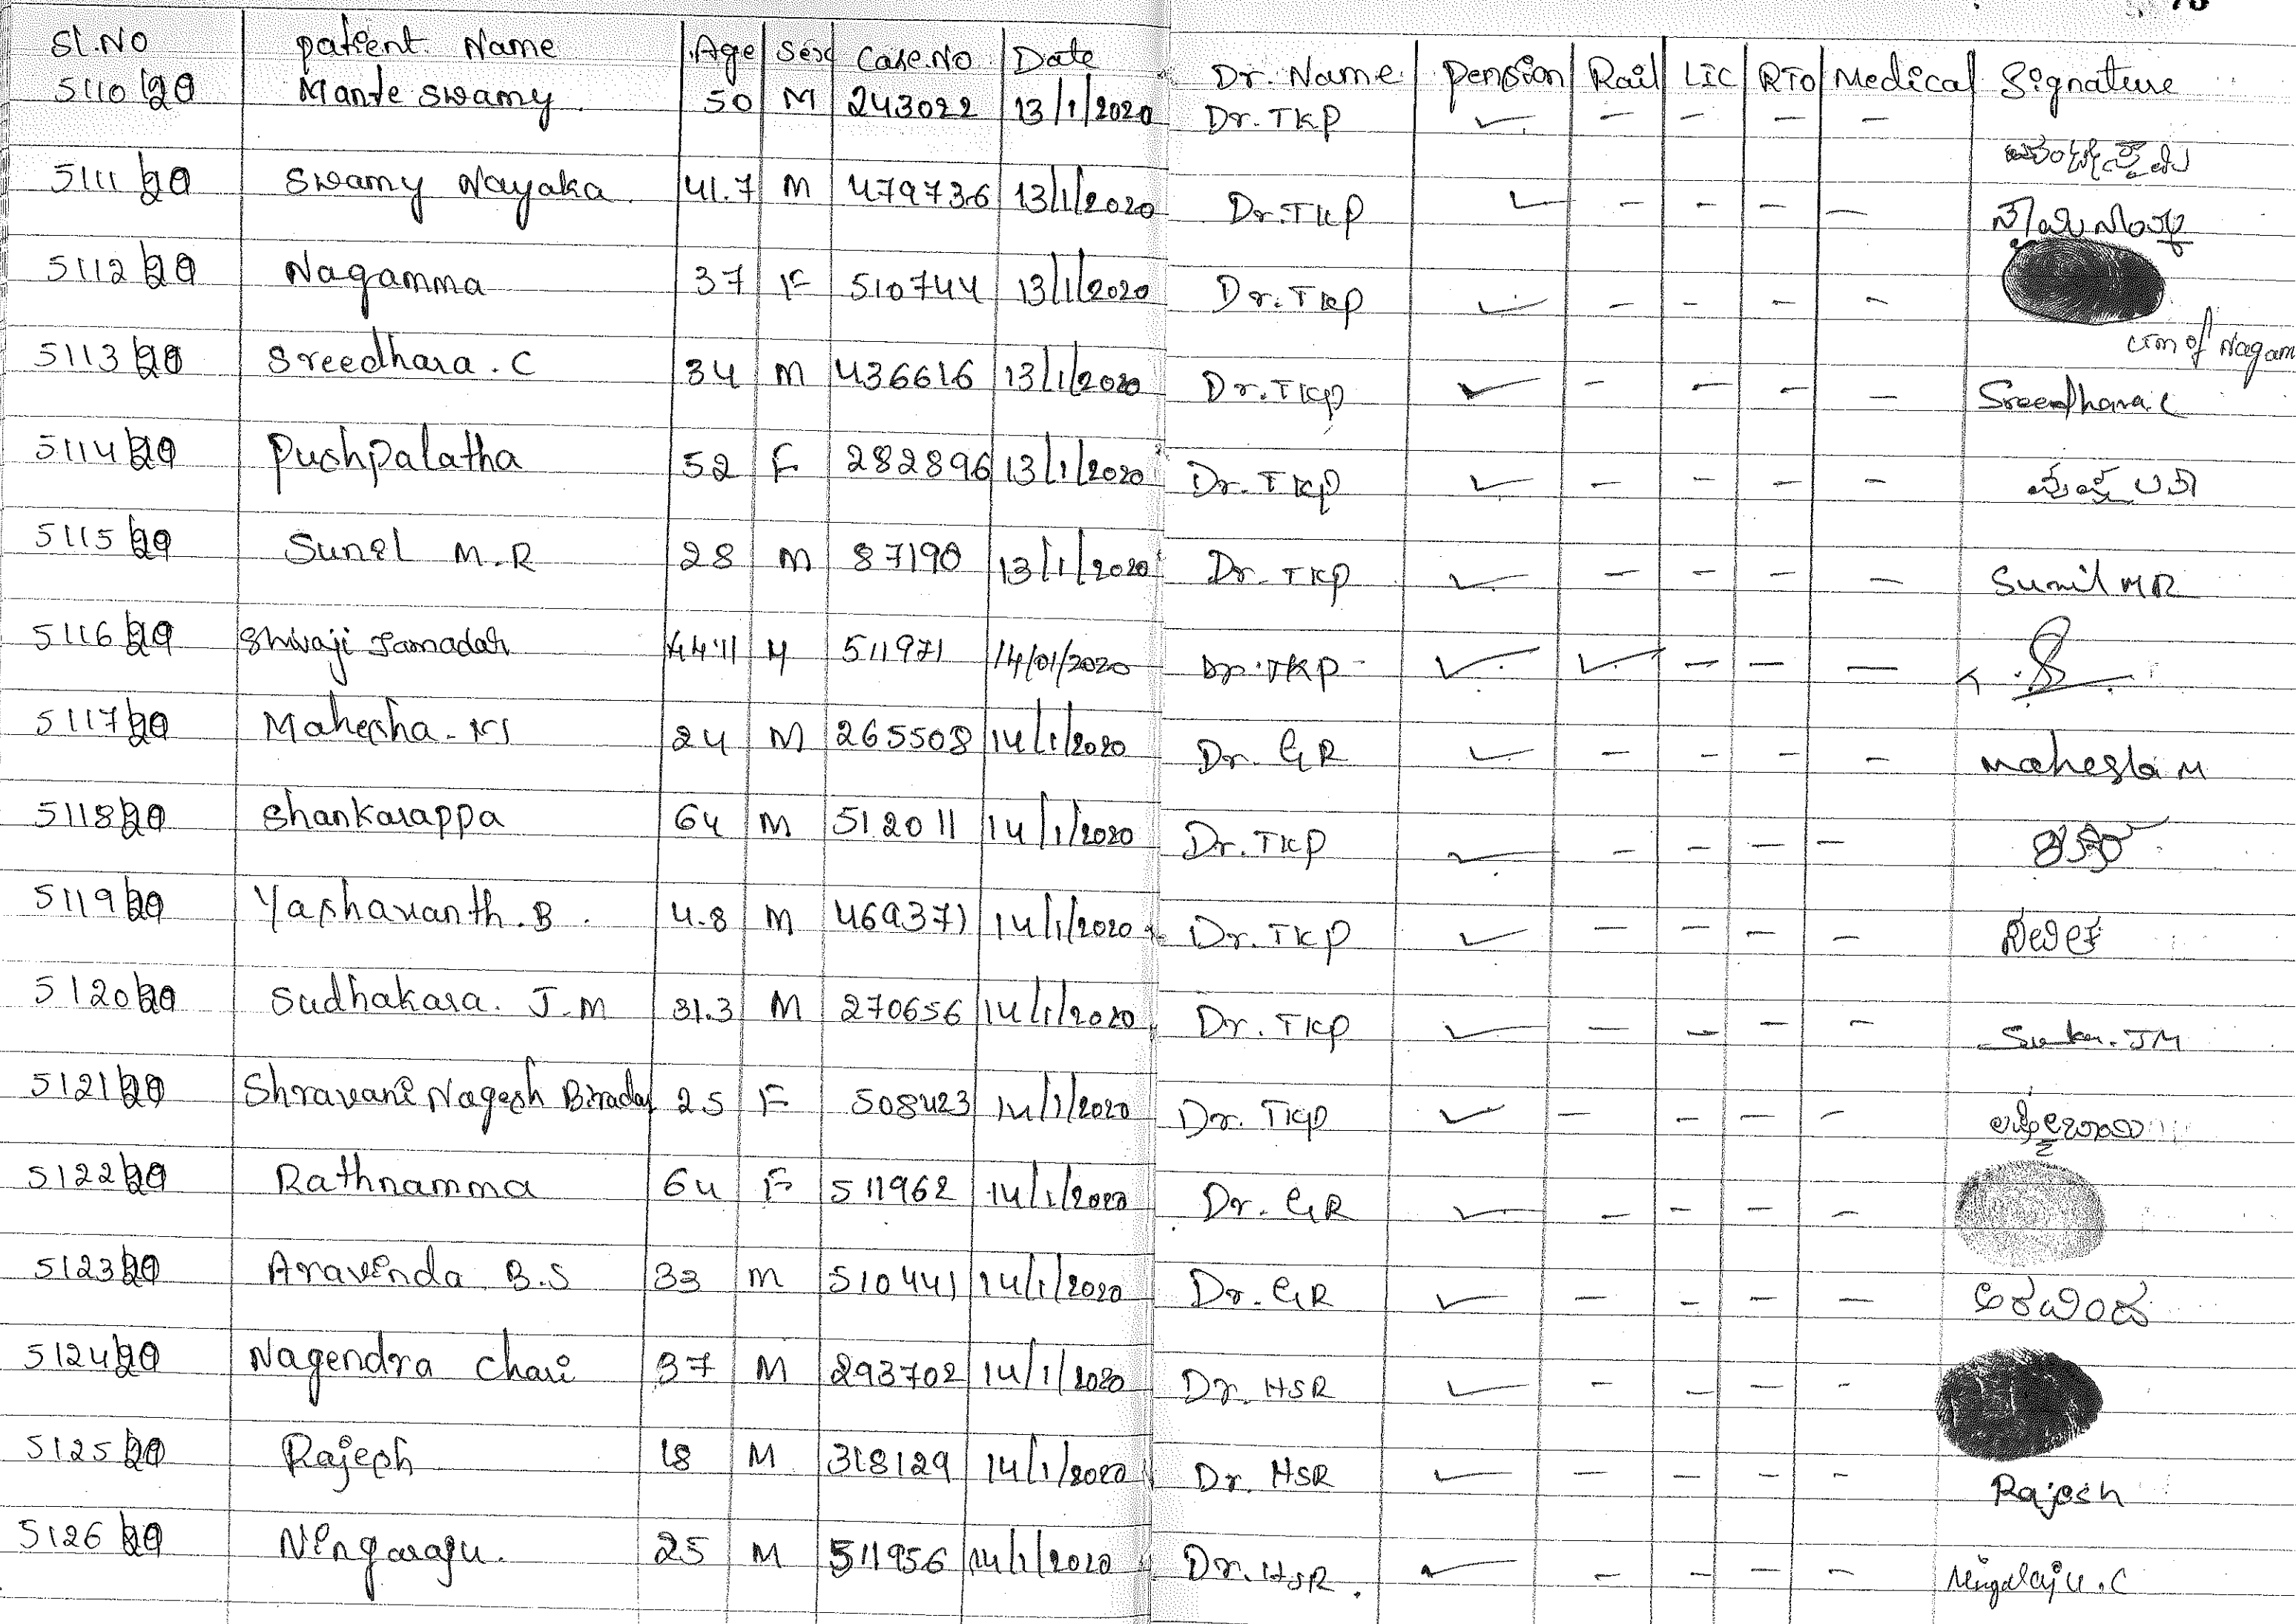 Sl.No patient Name Age Sex Case.No Date Dr. Name pension Rail LIC RTO Medical Signature
5110/20 Mante swamy 50 M 243022 13/1/2020 Dr. TKP ✓ – – – –
5111/20 Swamy Nayaka 41.7 M 479736 13/1/2020 Dr. TKP ✓ – – – –
5112/20 Nagamma 37 F 510744 13/1/2020 Dr. TKP ✓ – – – – LTM of Nagam
5113/20 Sreedhara . C 34 M 436616 13/1/2020 Dr. TKP ✓ – – – – Sreedhara.C
5114/20 Pushpalatha 52 F 282896 13/1/2020 Dr. TKP ✓ – – – – ಪುಷ್ಪಲತಾ
5115/20 Sunil M.R 28 M 87190 13/1/2020 Dr. TKP ✓ – – – – Sunil MR
5116/20 Shivaji Jamadar 44.11 M 511971 14/01/2020 Dr. TKP ✓ ✓ – – –
5117/20 Mahesha. M 24 M 265508 14/1/2020 Dr. GR ✓ – – – – Mahesha M
5118/20 Shankarappa 64 M 512011 14/1/2020 Dr. TKP ✓ – – – –
5119/20 Yashavanth . B 4.8 M 469371 14/1/2020 Dr. TKP ✓ – – – –
5120/20 Sudhakara. J.M 31.3 M 270656 14/1/2020 Dr. TKP ✓ – – – – JM
5121/20 Shravani Nagesh Biradar 25 F 508423 14/1/2020 Dr. TKP ✓ – – – –
5122/20 Rathnamma 64 F 511962 14/1/2020 Dr. GR ✓ – – – –
5123/20 Aravinda B.S 33 M 510441 14/1/2020 Dr. GR ✓ – – – – ಅರವಿಂದ
5124/20 Nagendra Chari 37 M 293702 14/1/2020 Dr. HSR ✓ – – – –
5125/20 Rajesh 18 M 318129 14/1/2020 Dr. HSR ✓ – – – – Rajesh
5126/20 Ningaraju. 25 M 511956 14/1/2020 Dr. HSR. ✓ – – – – Ningaraju.C